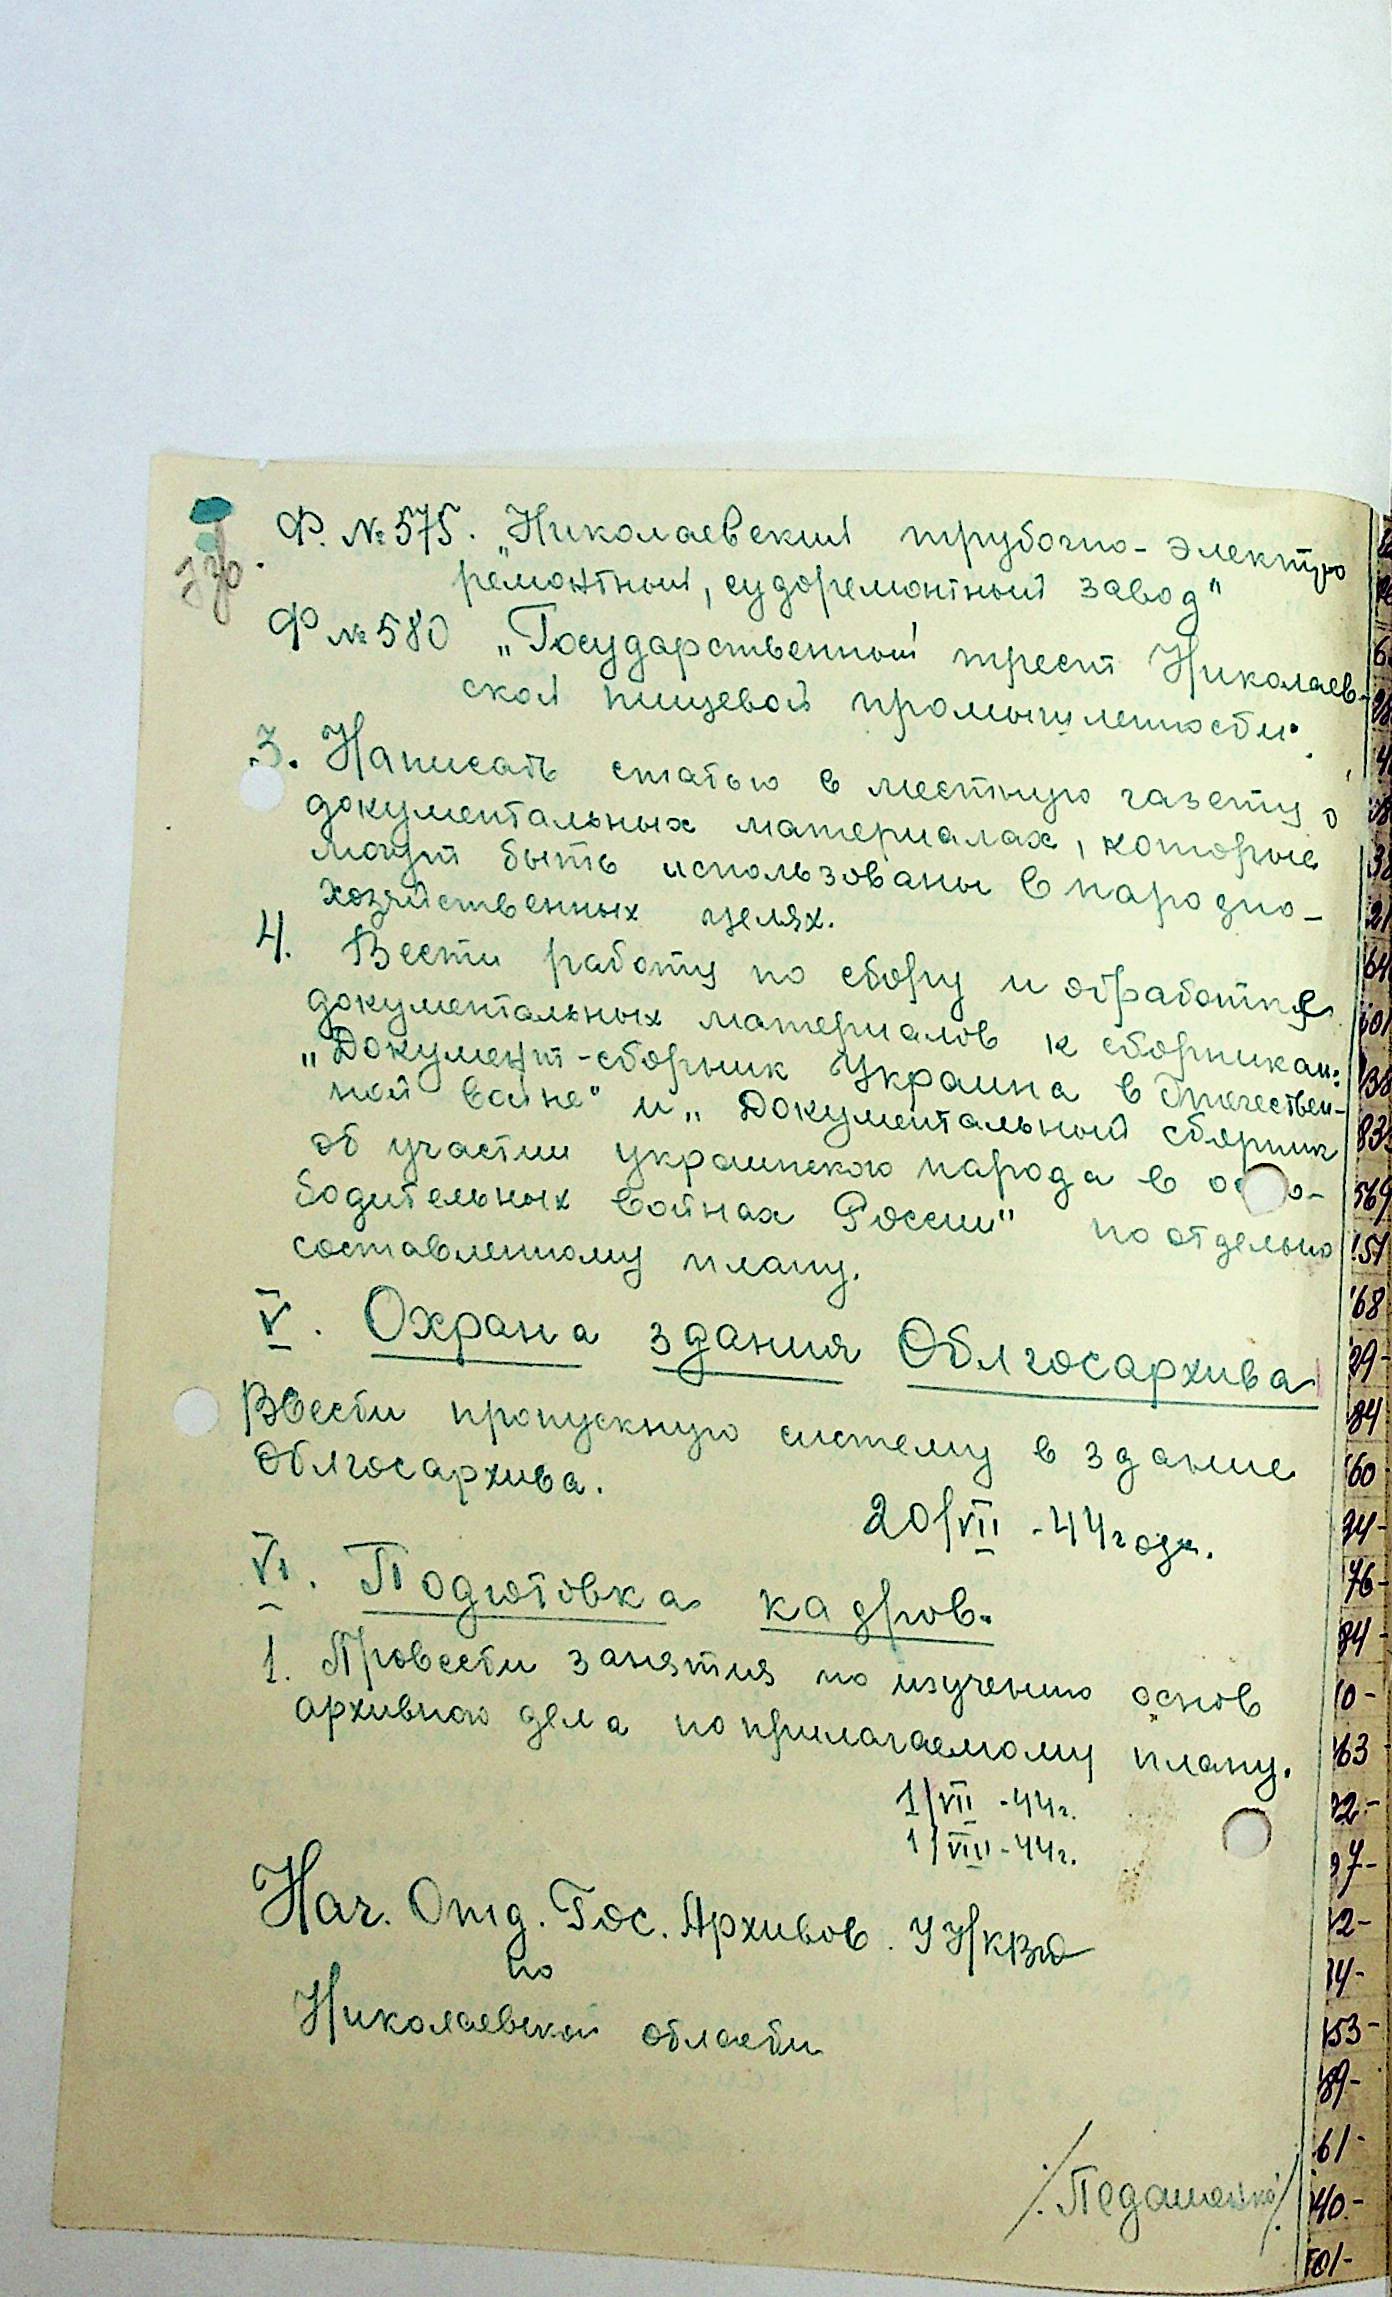 Ф. № 575. „Николаевский трубочно-электро
ремонтный, судоремонтный завод"
Ф № 580 „Государственный трест Николаев-
ской пищевой промышленности.
3. Написать статью в местную газету о
документальных материалах, которые
могут быть использованы в народно-
хозяйственных целях.
4. Вести работу по сбору и обработке
документальных материалов к сборникам:
„Документ-сборник Украина в Отечествен-
ной войне" и „Документальный сборник
об участии украинского народа в
бодительных войнах России" по отдельно
составленному плану.
V. Охрана здания Облгосархива
Ввести пропускную систему в здание
Облгосархива.
20/VII -44 года.
VI. Подготовка кадров.
1. Провести занятия по изучению основ
архивного дела по прилагаемому плану.
1/VII -44г.
1/VIII -44г.
Нач. Отд. Гос. Архивов УНКВД
по
Николаевской области
/Педашенко/